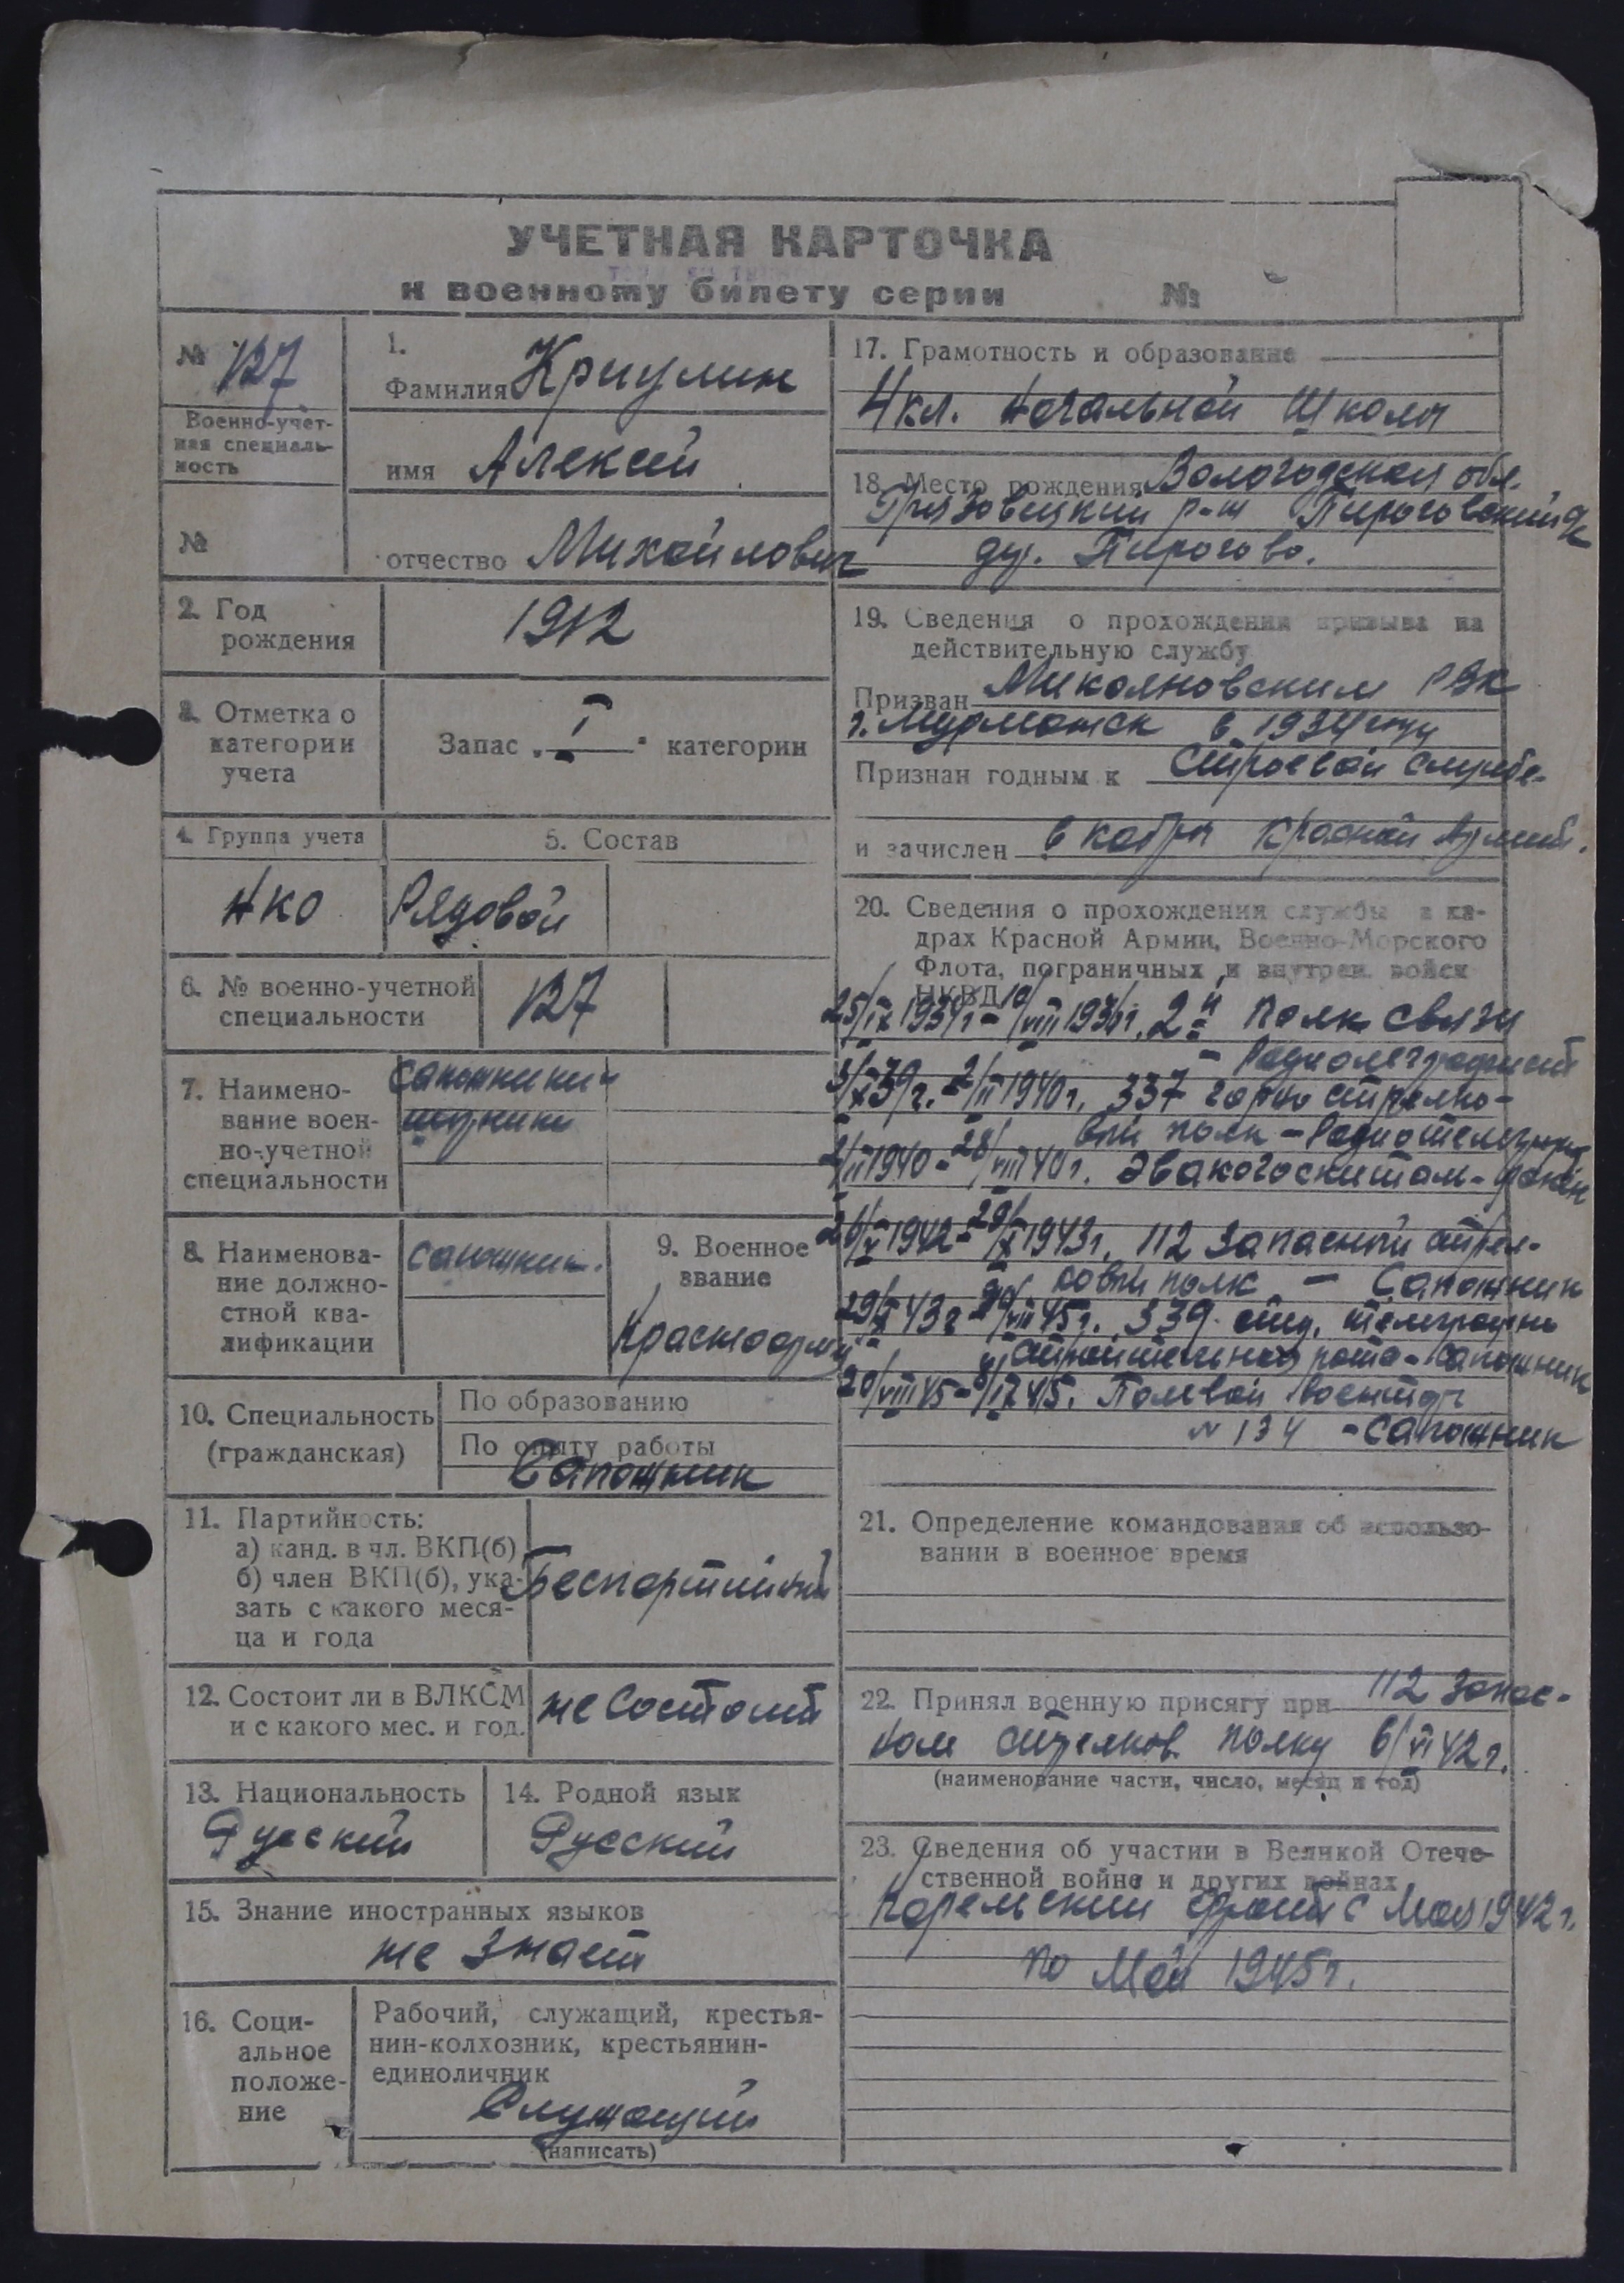 УЧЕТНАЯ КАРТОЧКА
к военному билету серии №
№ 127
Военно-учет-
ная специаль-
ность
№
1.
Фамилия Криулин
имя Алексей
отчество Михайлович
2. Год
рождения
1912
3. Отметка о
категории
учета
Запас „ I " категории
4. Группа учета
5. Состав
НКО
Рядовой
6. № военно-учетной
специальности
127
7. Наимено-
вание воен-
но-учетной
специальности
сапожники
8. Наименова-
ние должно-
стной ква-
лификации
сапожник.
9. Военное
звание
Красноарм
10. Специальность
(гражданская)
По образованию
По опыту работы
Сапожник
11. Партийность:
а) канд. в чл. ВКП(б)
б) член ВКП(б), ука-
зать с какого меся-
ца и года
Беспартийный
12. Состоит ли в ВЛКСМ
и с какого мес. и год.
не состоит
13. Национальность
Русский
14. Родной язык
Русский
15. Знание иностранных языков
не знает
16. Соци-
альное
положе-
ние
Рабочий, служащий, крестья-
нин-колхозник, крестьянин-
единоличник
Служащий
(написать)
17. Грамотность и образование
4 кл. начальной школы
18. Место рождения Вологодская обл.
Грязовецкий р-н Пироговский с/с
дер. Пирогово.
19. Сведения о прохождении призыва на
действительную службу
Призван Микояновским РВК
г. Мурманск в 1934 году
Признан годным к строевой службе.
и зачислен в кадры Красной Армии.
20. Сведения о прохождении службы в ка-
драх Красной Армии, Военно-Морского
Флота, пограничных и внутрен. войск
НКВД
25/IX 1934г - 10/VIII 193 г. 2й полк связи
- Радиотелеграфист
2/II 1940г. 337 горно стрелко-
вый полк - Радиотелеграф
2/II 1940 - 28/VIII 40г. Эвакогоспиталь -
26/V 1942 - 29/X 1943г. 112 Запасной стрел-
ковый полк - Сапожник
29/X 43г - 20/VIII 45г. 339 отд. телеграфно
строительная рота - сапожник
20/VIII 45 - /IX 45. Полевой
№ 134 - сапожник
21. Определение командования об использо-
вании в военное время
22. Принял военную присягу при 112 запас-
ном стрелков. полку 6/VI 42г.
(наименование части, число, месяц и год)
23. Сведения об участии в Великой Отече-
ственной войне и других войнах
Карельский фронт с Мая 1942г.
по Май 1945г.